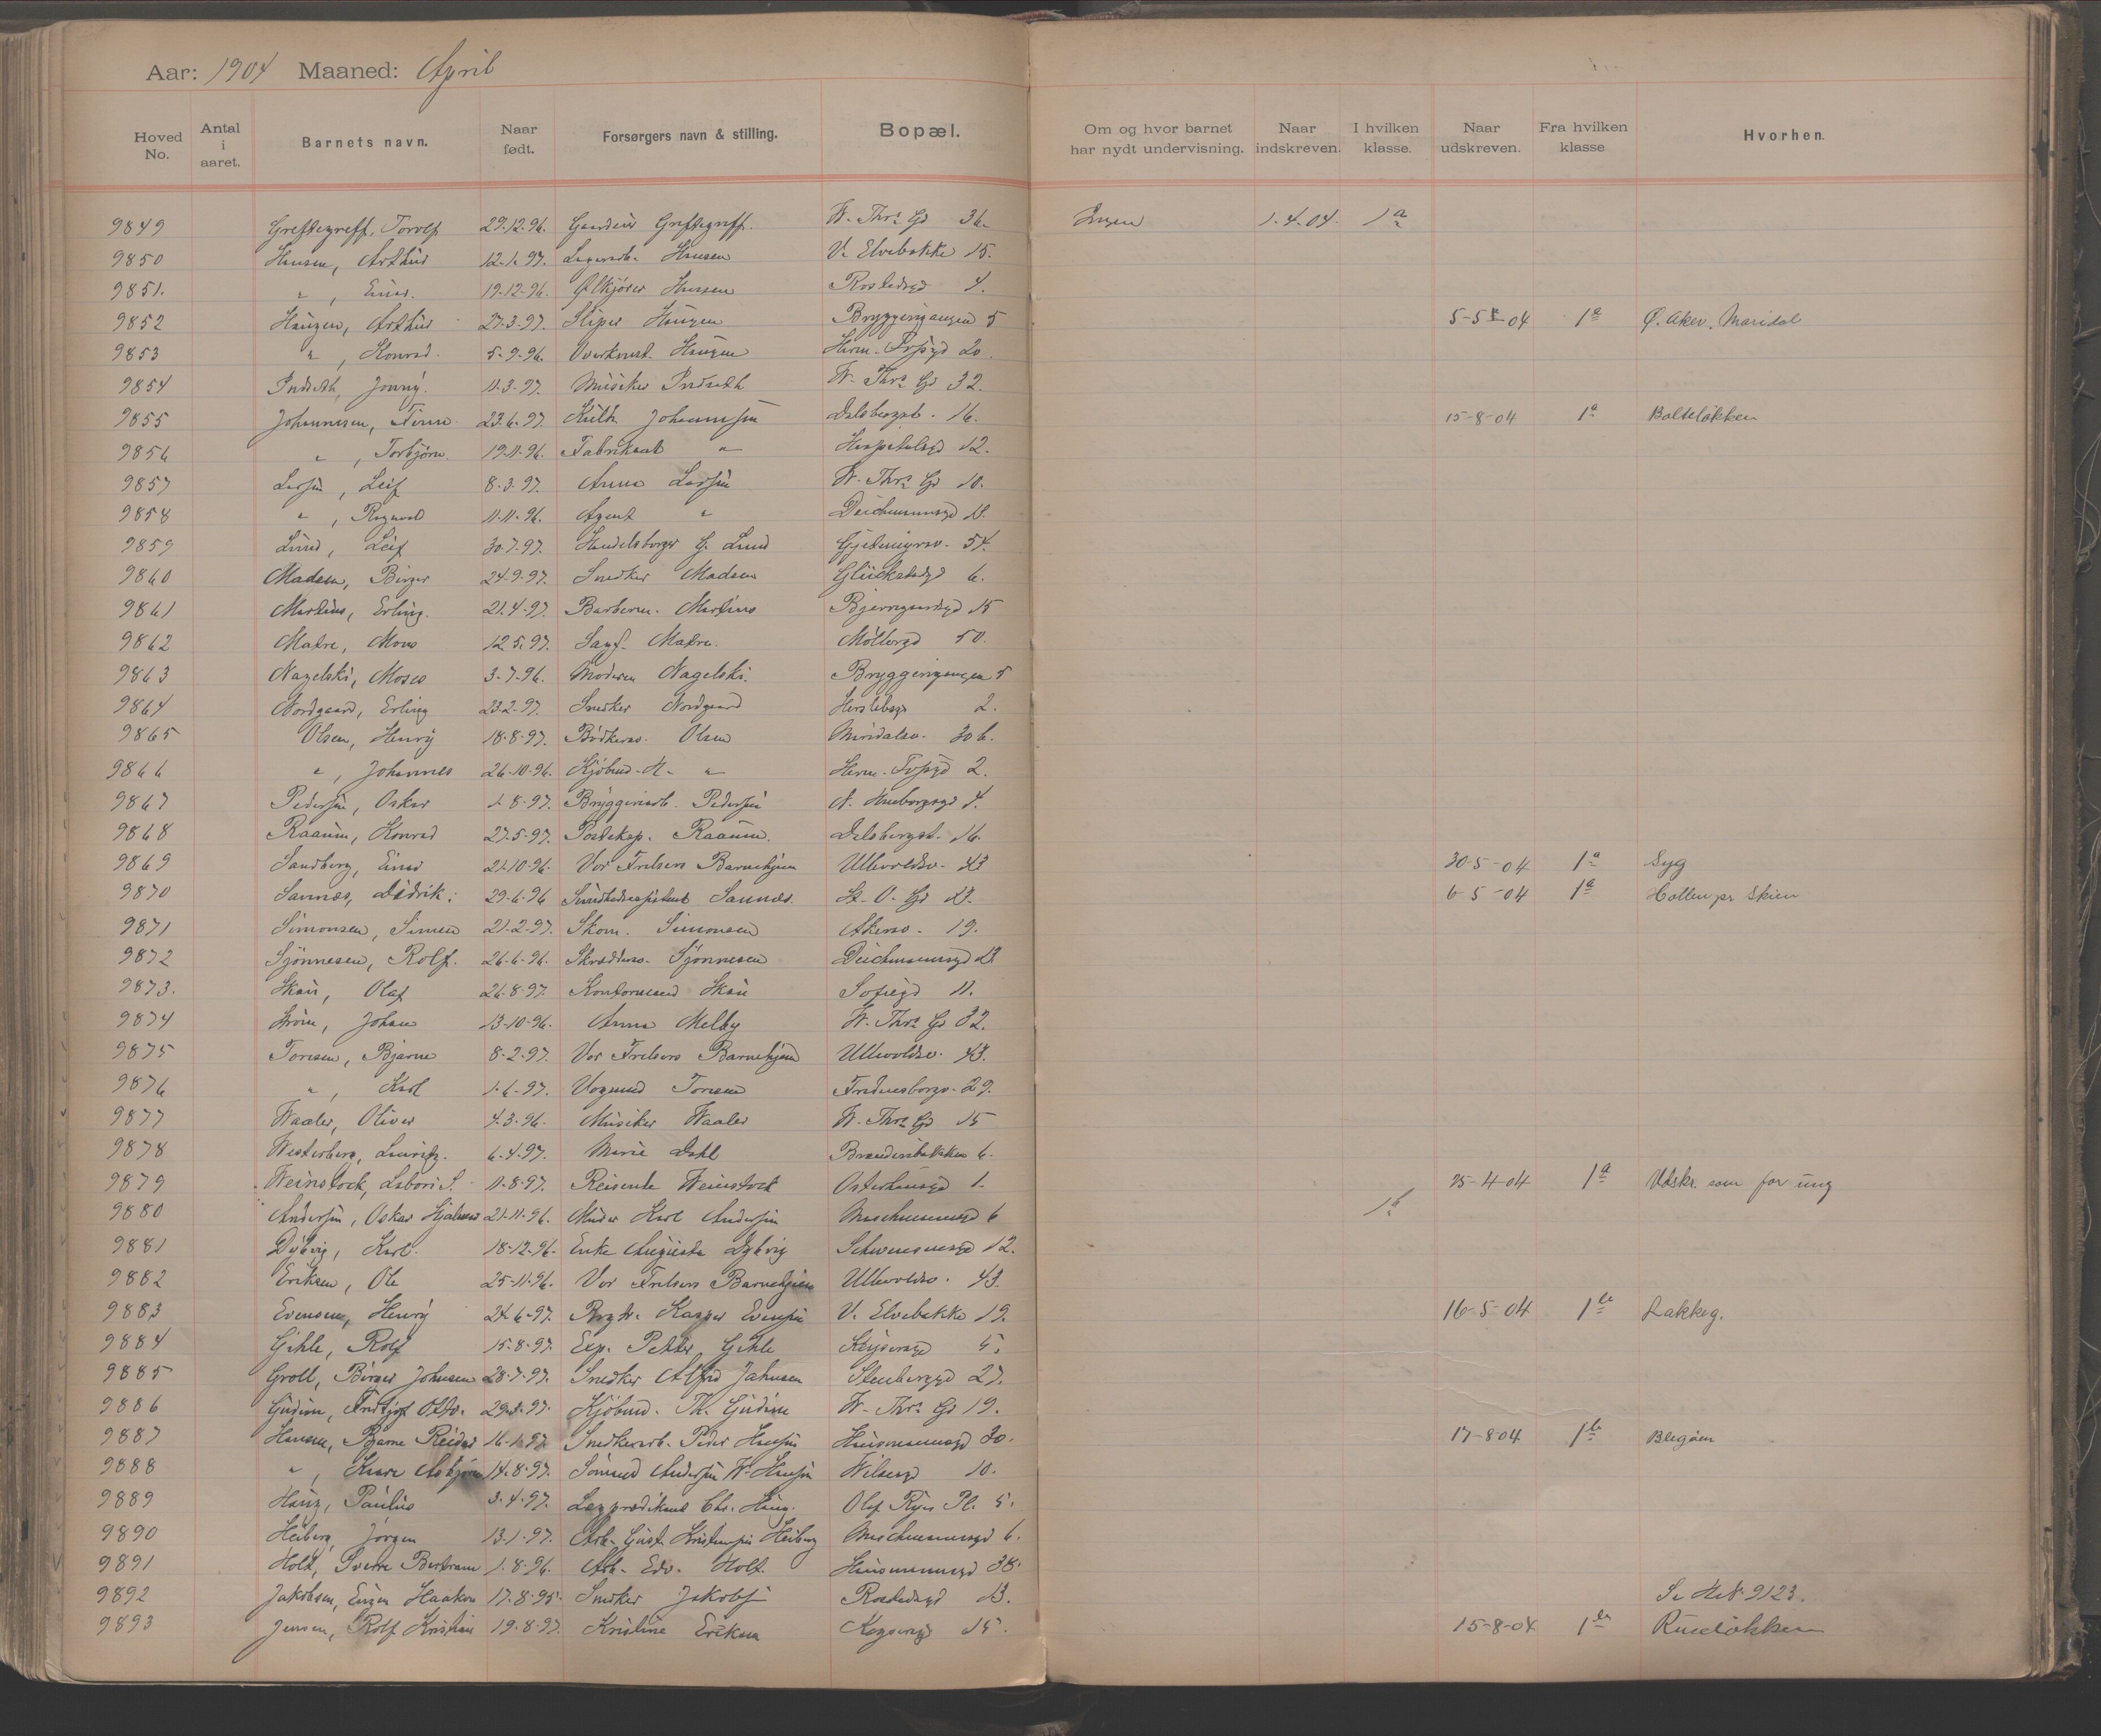 Aar: 1904 Maaned: April
Hoved No. Antal i aaret. Barnets navn. Naar født. Forsørgers navn & stilling. Bopæl. Om og hvor barnet har nydt undervisning. Naar indskreven. I hvilken klasse. Naar udskreven. Fra hvilken klasse Hvorhen.
9849 Greftegreff, Torolf 27.12.96. Greftegreff. W. Thrs Gd 36. Ingen 1.4.04. 1a
9850 Hansen, Arthur 12.1.97. Hansen V. Elvebakke 15.
9851. " , Einar. 19-12-96. Ølkjører Hansen Rostedsgd 4.
9852 Haugen, Arthur 27.3.97. Sliper Haugen Bryggerigangen 5 5-5-04 1a Ø. Aker. Maridal
9853 " , Konrad. 5-9-96. Haugen Herm. Fossgd 20.
9854 Indseth, Jonny. 11.3.97. Musiker Indseth W. Thrs Gd 32.
9855 Johannesen, Finn 23.6.97. Kusk Johannesen Dalsbergst. 16. 15-8-04 1a Bolteløkken
9856 " , Torbjørn. 19.11.96. Fabrikant " Hospitalsgd 12.
9857 Larsen, Leif 8.3.97. Anna Larsen W. Thrs Gd 10.
9858 " , Ragnvald 11.11.96. Agent " Deichmannsgd 18.
9859 Lund, Leif 30.7.97. Handelsborger G. Lund Gjetemyrsv. 54.
9860 Madsen, Birger 24-9-97. Snedker Madsen Glückstadgd 6.
9861 Martins, Erling. 21.4.97. Barberm. Martins Bjerregaardsgd 15
9862 Matre, Mons 12.5.97. Matre. Møllergd 50.
9863 Nagelski, Moses 3-7-96. Moderen Nagelski. Bryggerigangen 5
9864 Nordgaard, Erling 23.2.97. Snedker Nordgaard Herslebsgd 2.
9865 Olsen, Henry 18.8.97. Bødkersv. Olsen Maridalsv. 30b.
9866 " , Johannes 26-10-96. Kjøbmd. A. " Herm. Fossgd 2.
9867 Pedersen, Oskar 1.8.97. Bryggeriarb. Pedersen 4.
9868 Raaum, Konrad 27.5.97. Postekp. Raaum. Dalsbergst. 16.
9869 Sandberg, Einar 21.10.96. Vor Frelsers Barnehjem Ullevoldsv. 43 30-5-04 1a Syg
9870 Sannes, Didrik. 29.6.96 Sannes. St. O. Gd 6-5-04 1a Hollen pr Skien
9871 Simonsen, Simen 21-2-97. Skom. Simonsen Akersv. 19.
9872 Sjønnesen, Rolf. 26-6-96. Skræddersv. Sjønnesen Deichmannsgd
9873. Skau, Olaf 26.8.97. Kontormand Skau Sofiegd 11.
9874 Strøm, Johan 13-10-96. Anna Melby W. Thrs Gd 32.
9875 Toresen, Bjarne 8.2.97. Vor Frelsers Barnehjem Ullevoldsv. 43.
9876 " , Karl 1.6-97. Vognmd Toresen Fredensborgv. 29.
9877 Waaler, Oliver 4.3.96. Musiker Waaler W. Thrs Gd 15
9878 Westerberg, Lauritz. 6.4.97. Marie Dahl 6.
9879 Weinstock, 11-8-97. Reisende Weinstock Osterhausgd 1. 25-4-04 1a Udskr. som for ung
9880 Andersen, Oskar Hjalmar 21-11-96. Murer Karl Andersen 6 1b
9881 Dybvig, Karl. 18-12-96. Enke Augusta Dybvig Schwensensgd 12.
9882 Eriksen, Ole 25-11-96. Vor Frelsers Barnehjem Ullevoldsv. 43.
9883 Evensen, Henry 24.6-97. Kasper Evensen V. Elvebakke 19. 16-5-04 1b Lakkeg.
9884 Gihle, Rolf 15-8-97. Exp. Petter Gihle Keysersgd 5.
9885 Groll, Birger Johnsen 28-7-97. Snedker Alfred Johnsen Stenberggd 27.
9886 Gudim, Fridtjof Otto. Kjøbmd. Th. Gudim W. Thrs Gd 19.
9887 Hansen, Bjarne Reidar 16-1-97. Snedkerarb. Peder Hansen Huusmannsgd 30. 17-8-04 1b
9888 " , Kåre Asbjørn 14.8.97. Sømand Andersen W. Hansen Wilsesgd 10.
9889 Haug, Paulus 3.4.97. Lægprædikant Chr. Haug. Olaf Ryes Pl. 5.
9890 Heiberg, Jørgen 13.1.97. Arb. Gust. Kristensen Heiberg 6.
9891 Holt, Sverre Bertram 1.8.96. Arb. Edv. Holt. Huusmannsgd 38.
9892 Jakobsen, Eugen Haakon 17.8.95. Snedker Jakobsen Rostedsgd 13. Se H.N. 9123.
9893 Jensen, Rolf Kristian 19.8.97. Kristine Eriksen Keysersgd 15. 15-8-04 1b Ruseløkken